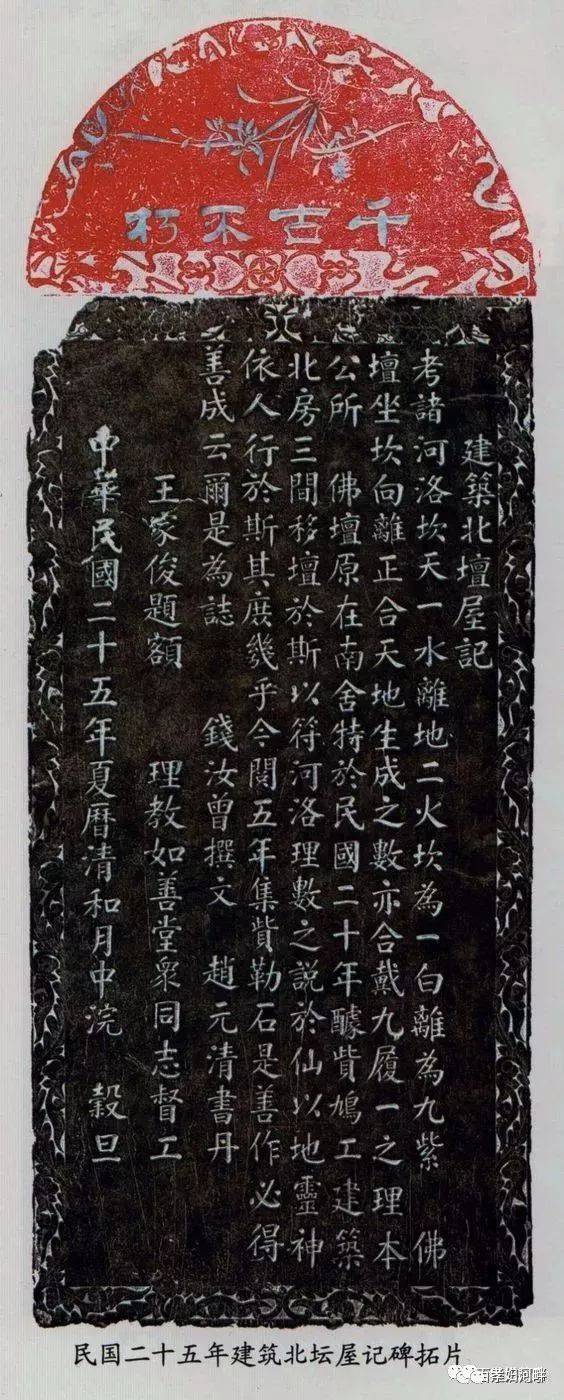 千古不朽
建築北壇屋記
考諸河洛坎天一水離地二火坎為一白離為九紫　佛
壇坐坎向離正合天地生成之數亦合戴九履一之理本
公所　佛壇原在南舍特於民國二十年醵貲鳩工建築
北房三間移壇於斯以符河洛理數之説於仙以地靈神
依人行於斯其庶幾乎今閱五年集貲勒石是善作必得
善成云爾是為誌　錢汝曾撰文　趙元清書丹
王家俊題額　理教如善堂衆同志督工
中華民國二十五年夏曆清和月中浣　榖旦
民国二十五年建筑北坛屋记碑拓片
百孝妇河畔